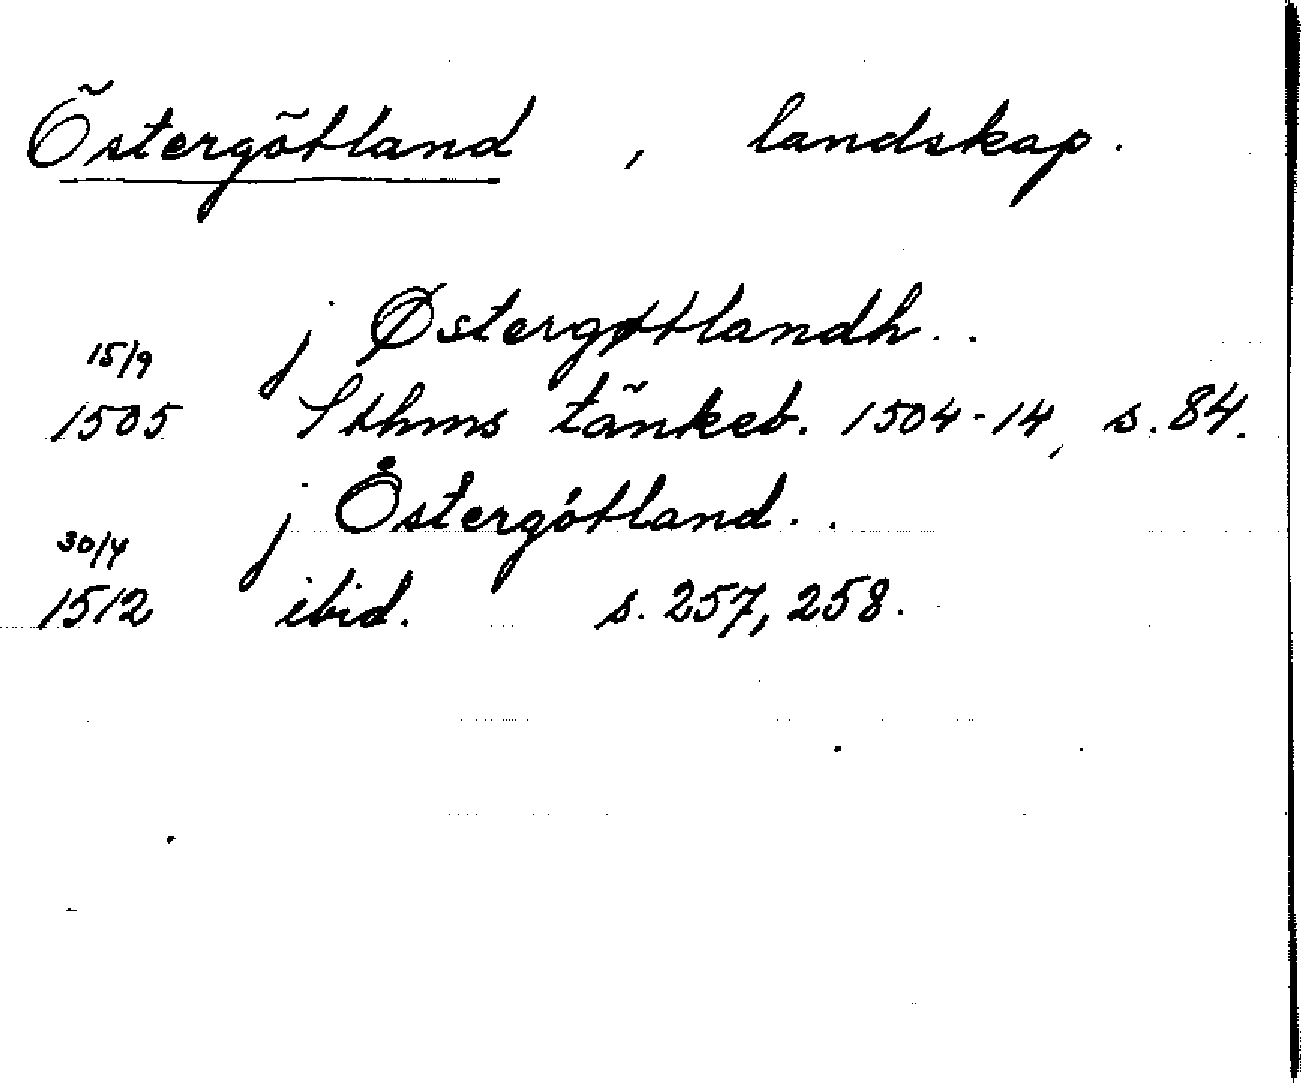 Östergötland, landskap.
j Østergøttlandh..
15/9
1505 Sthms tänkeb. 1504-14, s. 84.
j Östergótland..
30/4
1512 ibid. s. 257, 258.